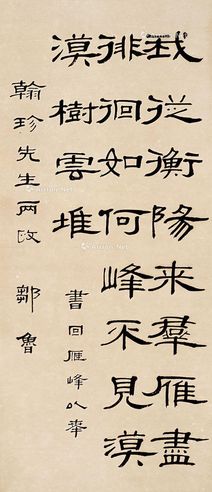 我從衡陽来羣雁盡
徘徊如何峰不見漠
漠樹雲堆
書回雁峰以奉
翰珍先生兩政 鄒魯